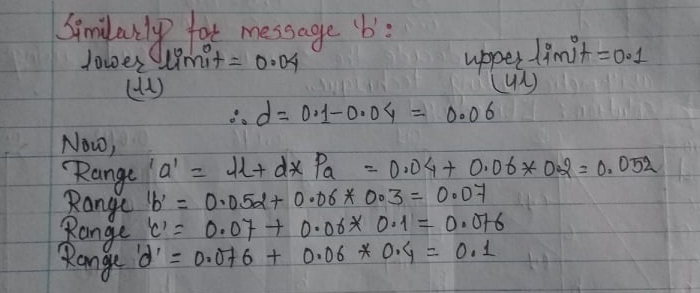 Similarly for message 'b':
lower limit = 0.04 upper limit = 0.1
(ll) (ul)
∴ d = 0.1-0.04 = 0.06
Now,
Range 'a' = ll + d x Pa = 0.04 + 0.06 * 0.2 = 0.052
Range 'b' = 0.052 + 0.06 * 0.3 = 0.07
Range 'c' = 0.07 + 0.06 * 0.1 = 0.076
Range 'd' = 0.076 + 0.06 * 0.4 = 0.1